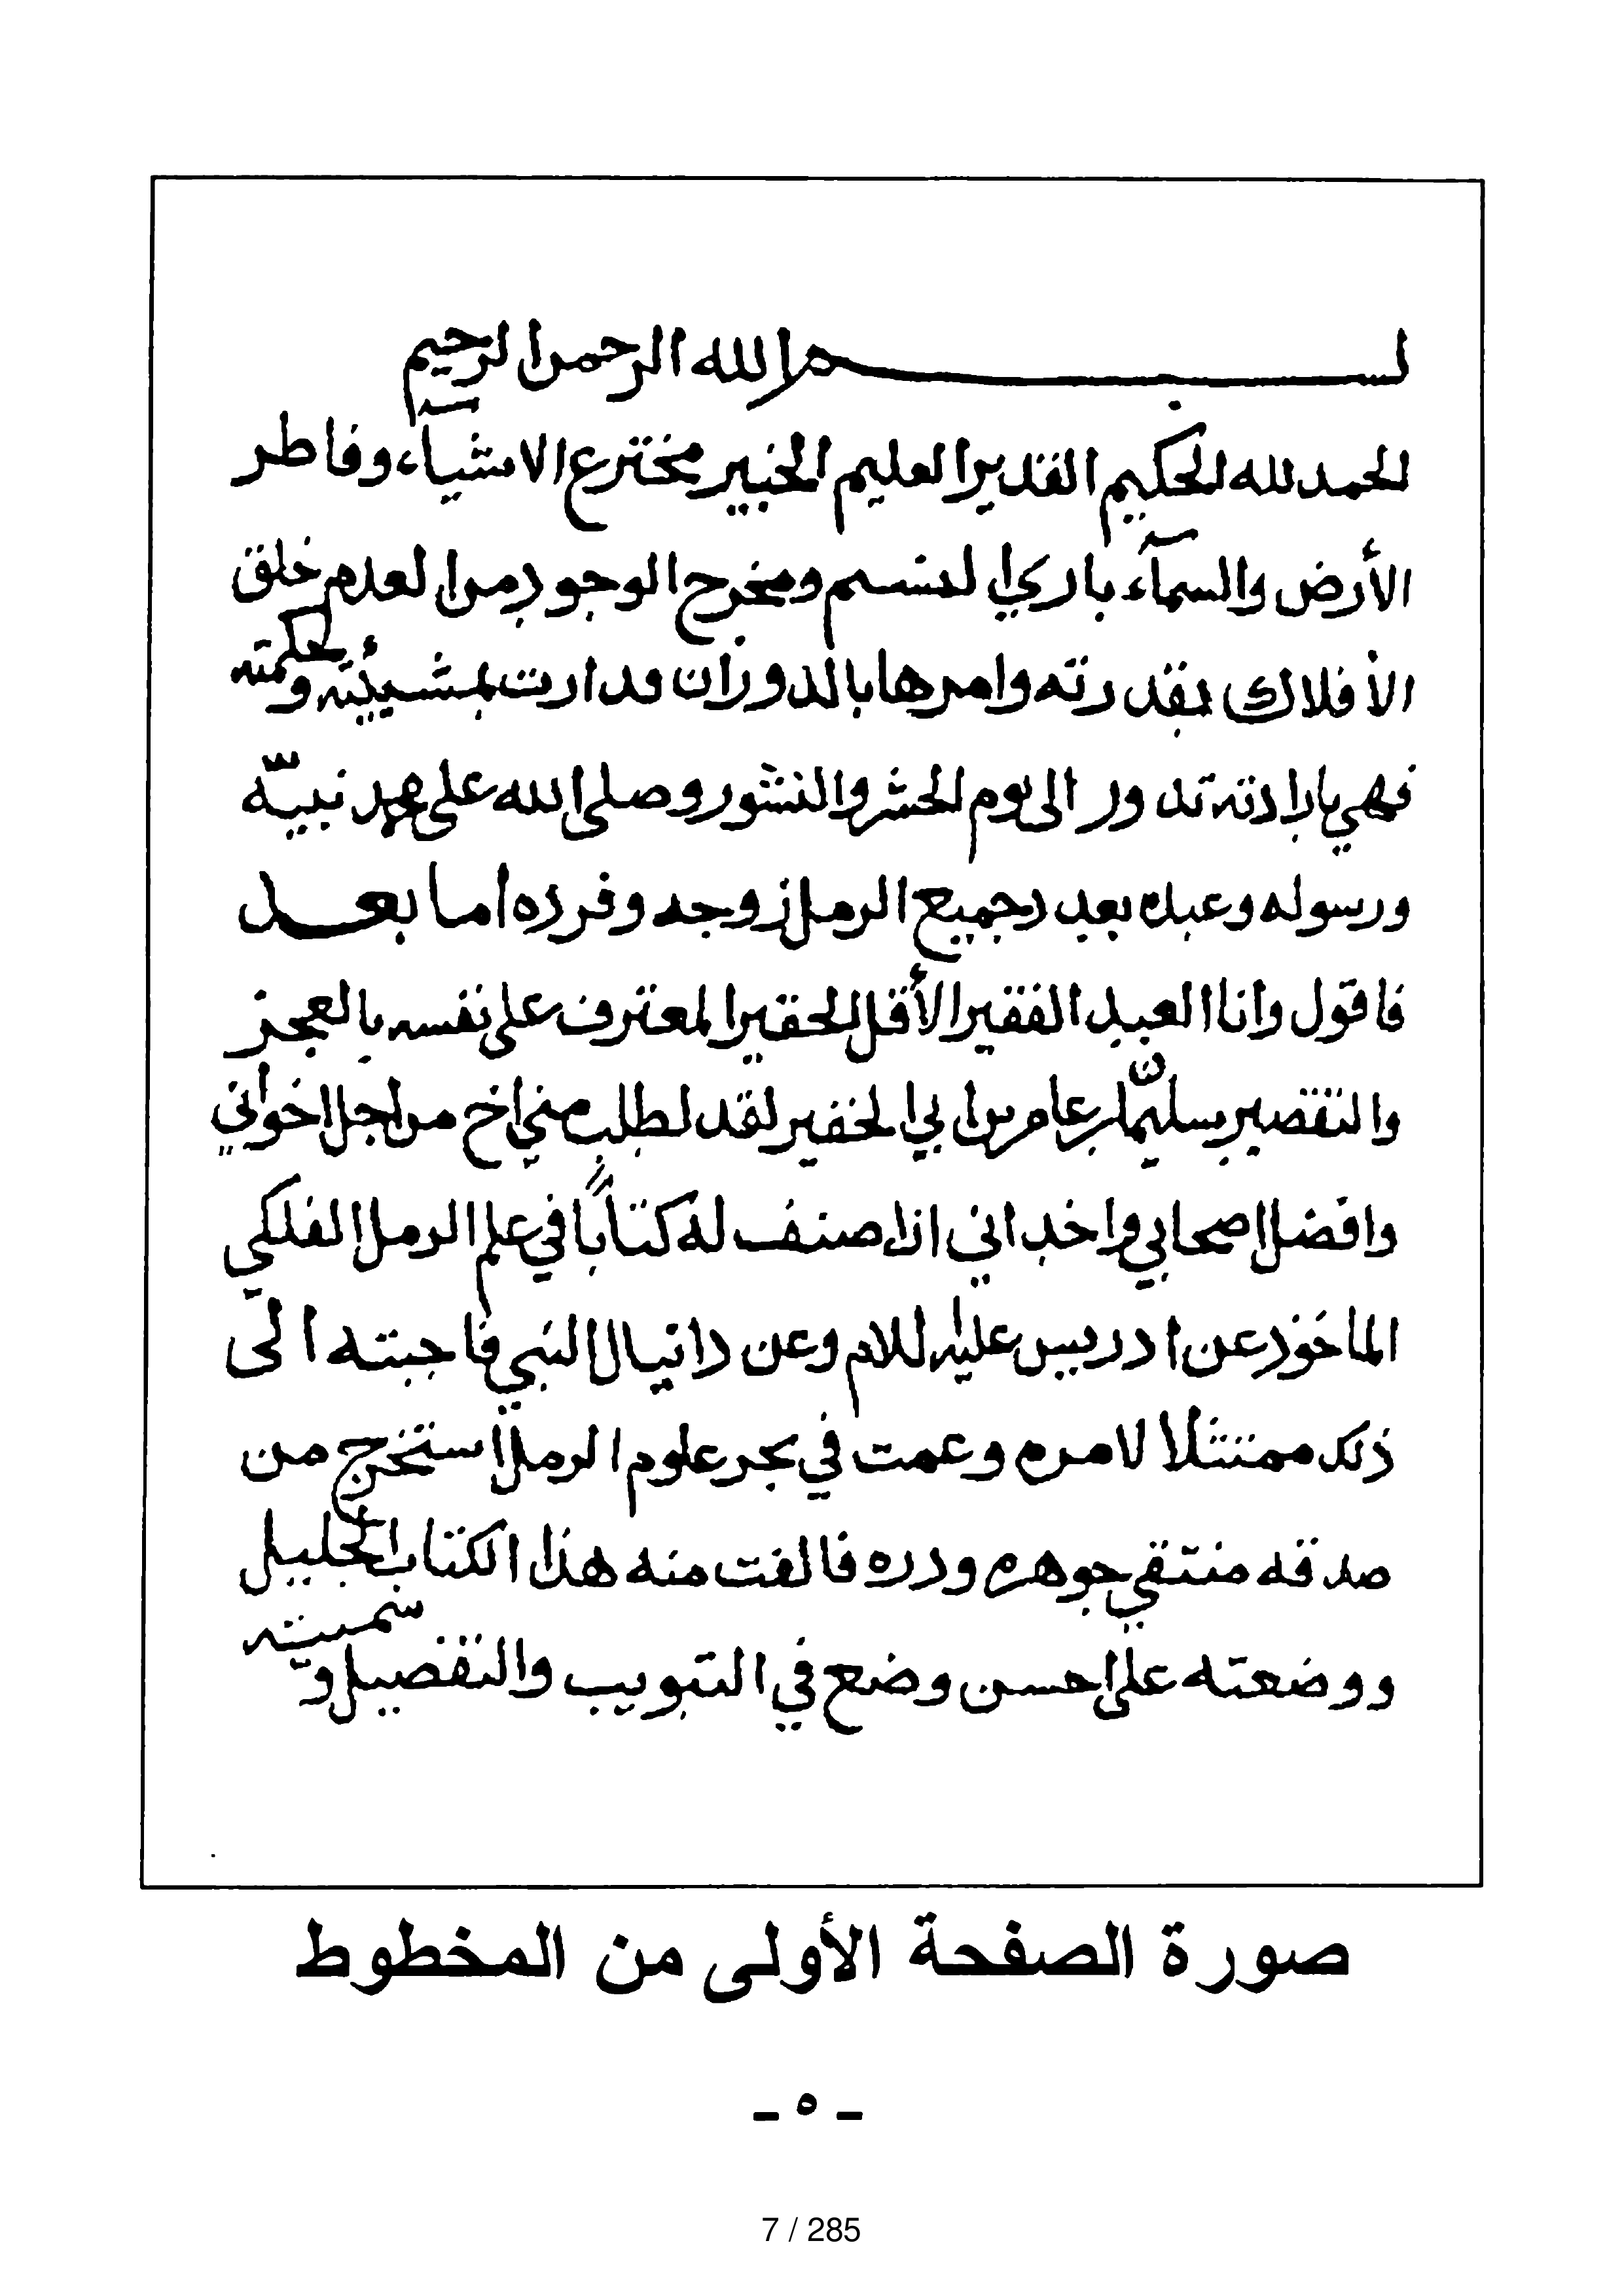 بسم الله الرحمن الرحيم
الحمد لله الحكيم القدير العليم الخبير مخترع الاشيآء وفاطر
الأرض والسمآء باري النسم ومخرج الوجود من العدم خلق
الأفلاك بقدرته وامرها بالدوران فدارت بمشيئته وحكمته
فهي بارادته تدور الى يوم الحشر والنشور وصلى الله على محمد نبيّه
ورسوله وعبده بعدد جميع الرمل زوجه وفرده اما بعد
فاقول وانا العبد الفقير الأقل الحقير المعترف على نفسه بالعجز
والتقصير سليمان بن عامر بن ابي الخفير لقد لطلب مني اخ من اجل اخواني
وافضل اصحابي واخداني ان اصنف له كتابًا في علم الرمل الفلكي
الماخوذ عن ادريس عليه للام وعن دانيال النبي فاجبته الى
ذلك ممتثلا لامره وعمت في بحر علوم الرمل استخرج من
صدقه منتقي جوهره ودره فالفت منه هذا الكتاب الجليل
ووضعته على احسن وضع في التبويب والتفصيل وسميته
صورة الصفحة الأولى من المخطوط
- ٥ -
7 / 285